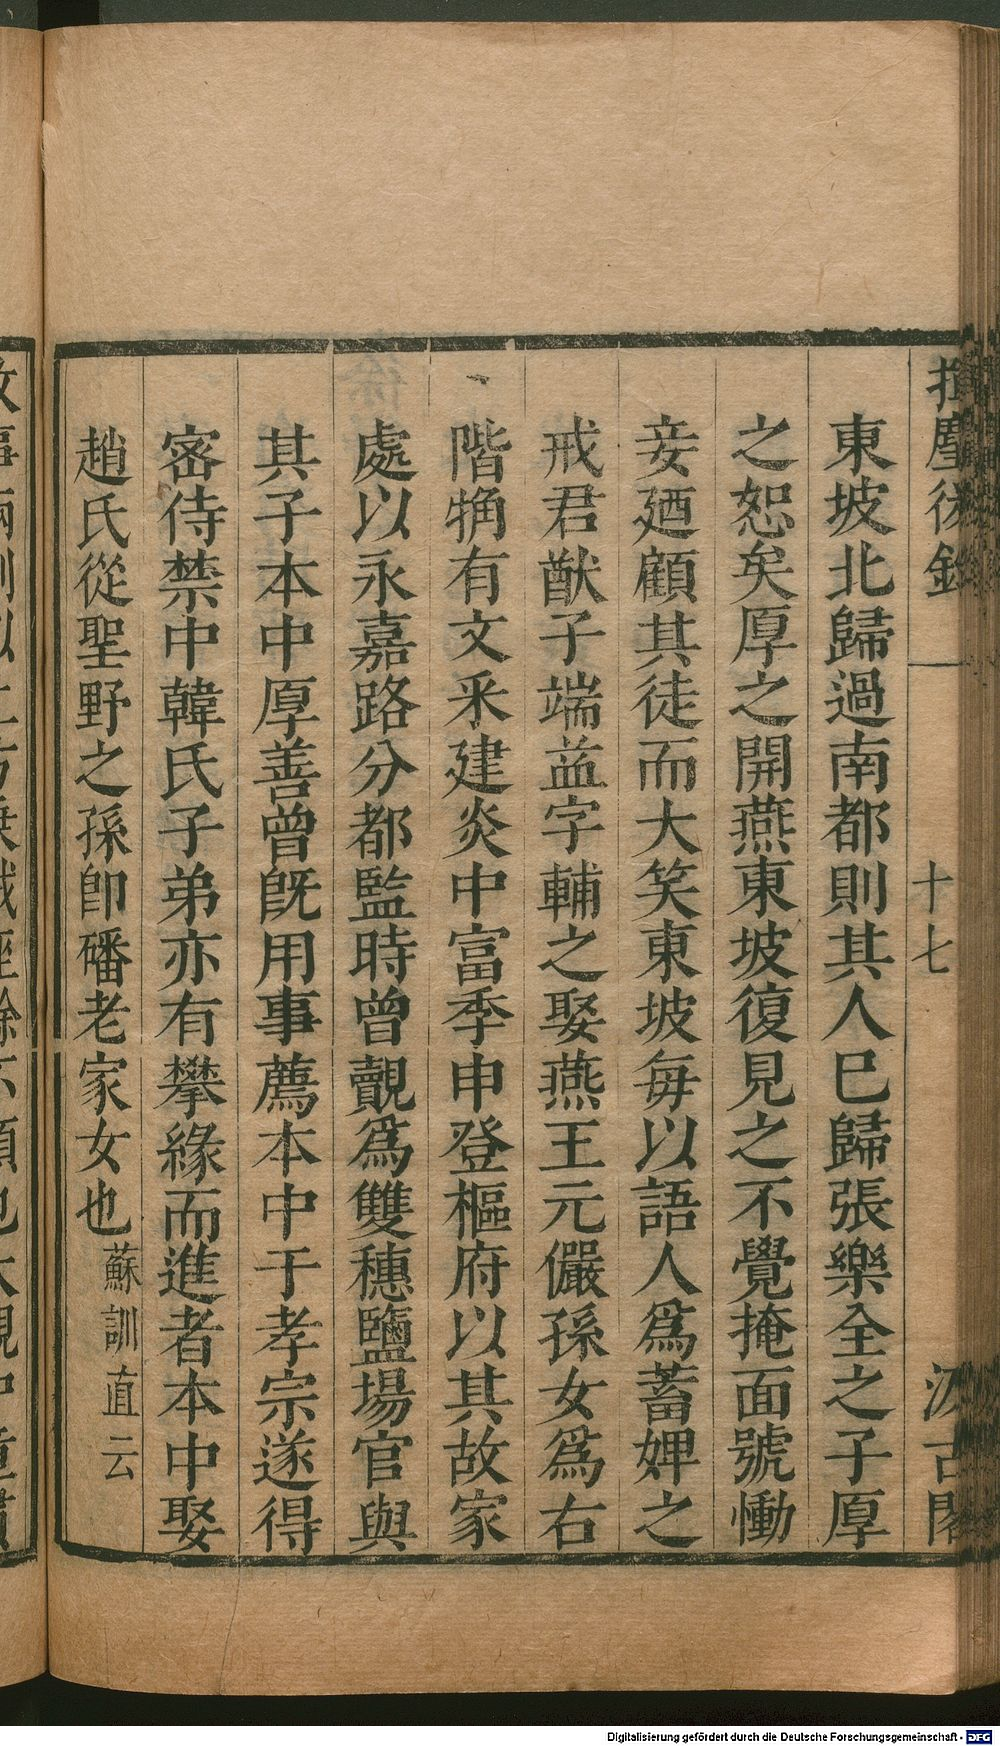 揮麈後錄
十七
汲古閣
東坡北歸過南都則其人巳歸張樂全之子厚
之恕矣厚之開燕東坡復見之不覺掩面號慟
妾廼顧其徒而大笑東坡每以語人爲蓄婢之
戒君猷子端益字輔之娶燕王元儼孫女爲右
階觕有文釆建炎中富季申登樞府以其故家
處以永嘉路分都監時曾覿爲雙穗鹽場官與
其子本中厚善曾旣用事薦本中于孝宗遂得
宻侍禁中韓氏子弟亦有攀緣而進者本中娶
趙氏從聖野之孫卽磻老家女也蘇訓直云
Digitalisierung gefördert durch die Deutsche Forschungsgemeinschaft - DFG